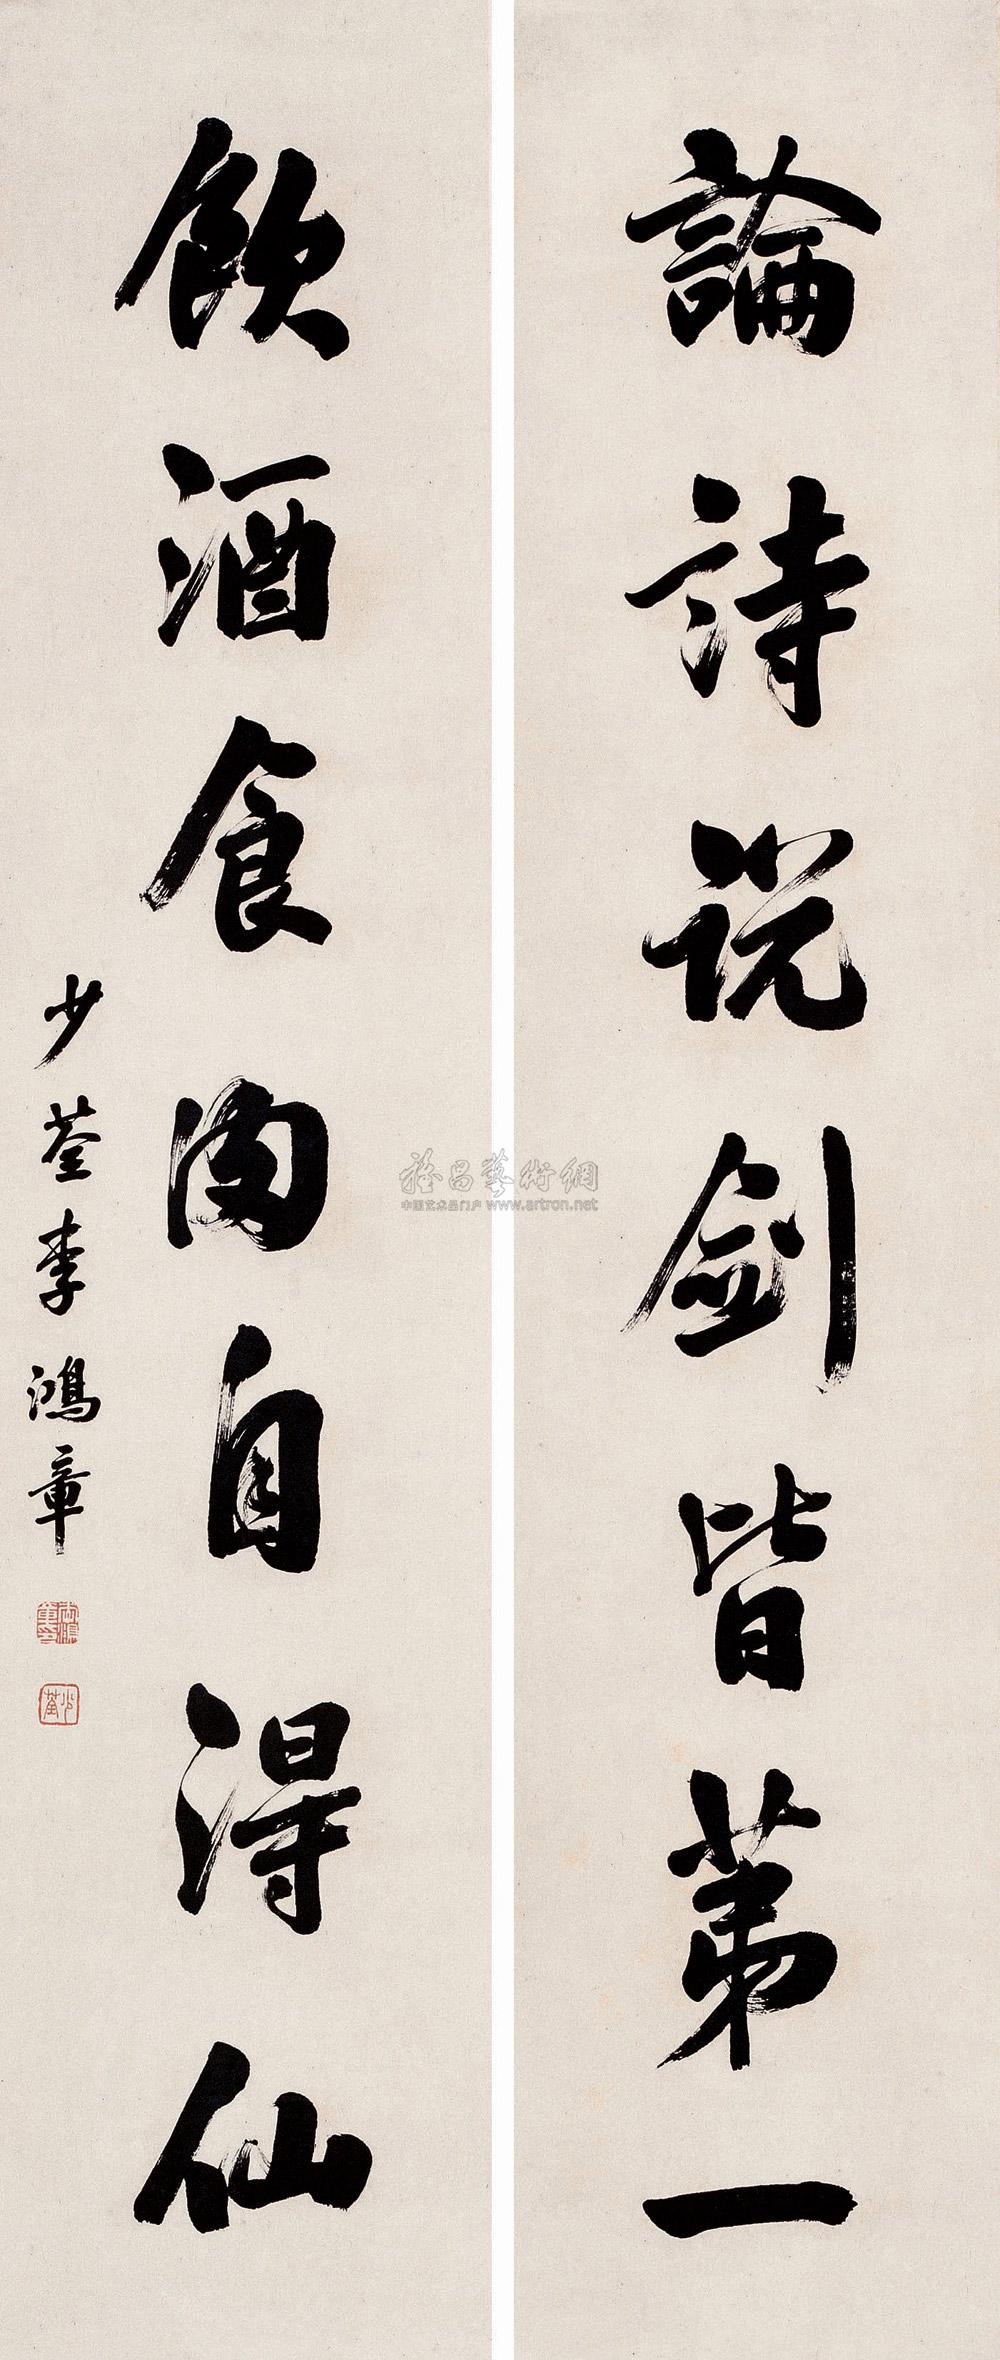 論詩说剑皆第一
飲酒食肉自得仙
少荃李鴻章
少荃
雅昌藝術網
中国艺术品门户 www.artron.net